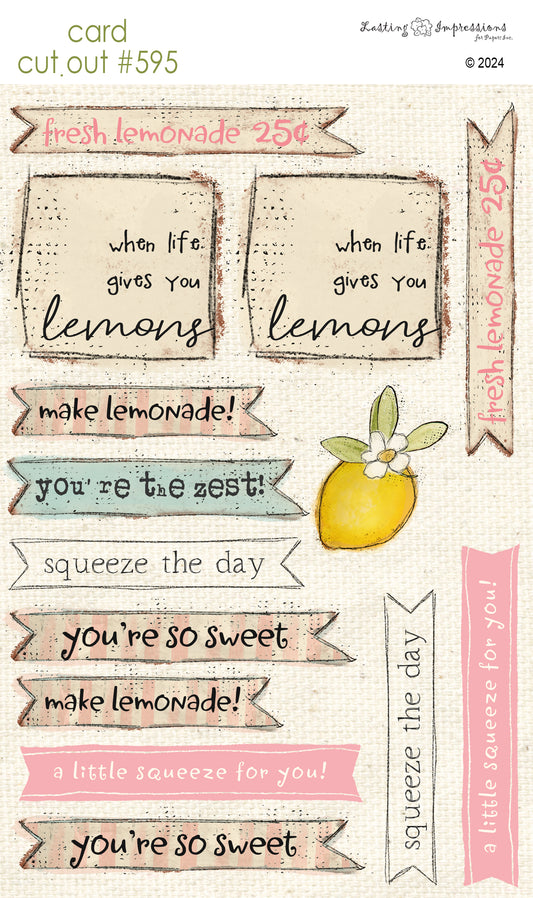 card
cut out #595
Lasting Impressions
for Paper, Inc.
© 2024
fresh lemonade 25¢
fresh lemonade 25¢
when life
gives you
lemons
when life
gives you
lemons
make lemonade!
you're the zest!
squeeze the day
you're so sweet
make lemonade!
a little squeeze for you!
you're so sweet
squeeze the day
a little squeeze for you!